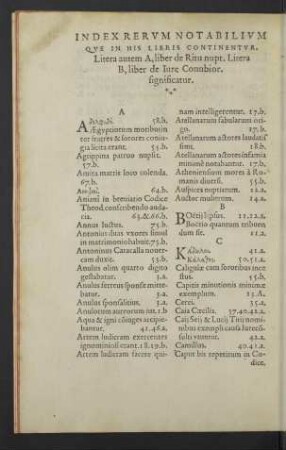 INDEX RERVM NOTABILIVM
QVE IN HIS LIBRIS CONTINENTVR.
Litera autem A, liber de Ritu nupt. Litera
B, liber de Iure Connubior.
significatur.
A
58.b.
Ægyptiorum moribus in
ter fratres & sorores coniu-
gia licita erant. 55.b.
Agrippina patruo nupsit.
57.b.
Amita matris loco colenda.
67.b.
64.b.
Aniani in breuiario Codicis
Theod. conscribendo auda-
cia. 65.& 66.b.
Annus luctus. 75.b.
Antonius duas vxores simul
in matrimonio habuit. 75.b.
Antoninus Caracalla nouer-
cam duxit. 55.b.
Anulus olim quarto digito
gestabatur. 2.a.
Anulus ferreus sponsæ mitte-
batur. 2.a.
Anulus sponsalitius. 2.a.
Anulorum aureorum ius. 1.b
Aqua & igni coniuges accipie-
bantur. 41.42.a.
Artem ludicram exercentes
ignominiosi erant. 18.19.b.
Artem ludicram facere qui-
nam intelligerentur. 17.b.
Atellanarum fabularum ori-
go. 17.b.
Atellanarum actores laudatis
simi. 18.b.
Atellanarum actores infamia
minime notabantur. 17.b.
Atheniensium mores à Ro-
manis diuersi. 55.b.
Auspices nuptiarum. 11.a.
Auctor mulierum. 14.a.
B
11.12.a.
dum sit. 11.a.
C
41.a.
50.51.a.
Caligulæ cum sororibus ince-
stus. 55.b.
Capitis minutionis minimæ
exemplum. 15.a.
Cerei. 35.a.
Caia Cæcilia. 37.40.41.a.
Caij Seij & Lucij Titij nomi-
nibus exempli causa Iurecon-
sulti vtuntur. 42.a.
Camillus. 40.41.a.
Caput bis repetitum in Co-
dice.